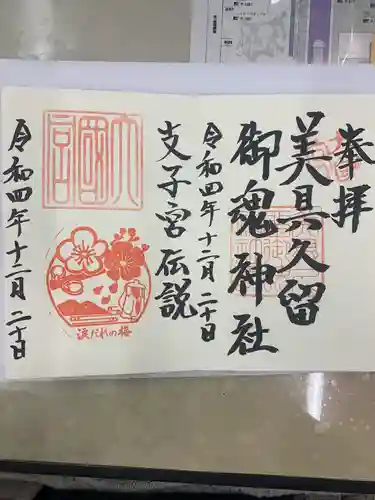 奉拝
美具久留
御魂神社
令和四年十二月二十日
支子宮伝説
大國宮
涙だれの梅
令和四年十二月二十日